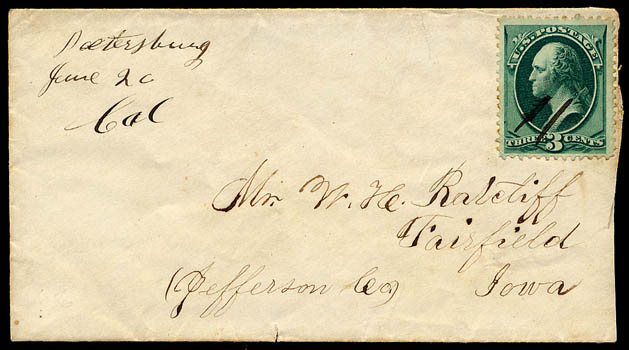 Poetersburg
June 20
Cal
U.S. POSTAGE
THREE 3 CENTS
Mr. W. H. Ratcliff
Fairfield
(Jefferson Co) Iowa